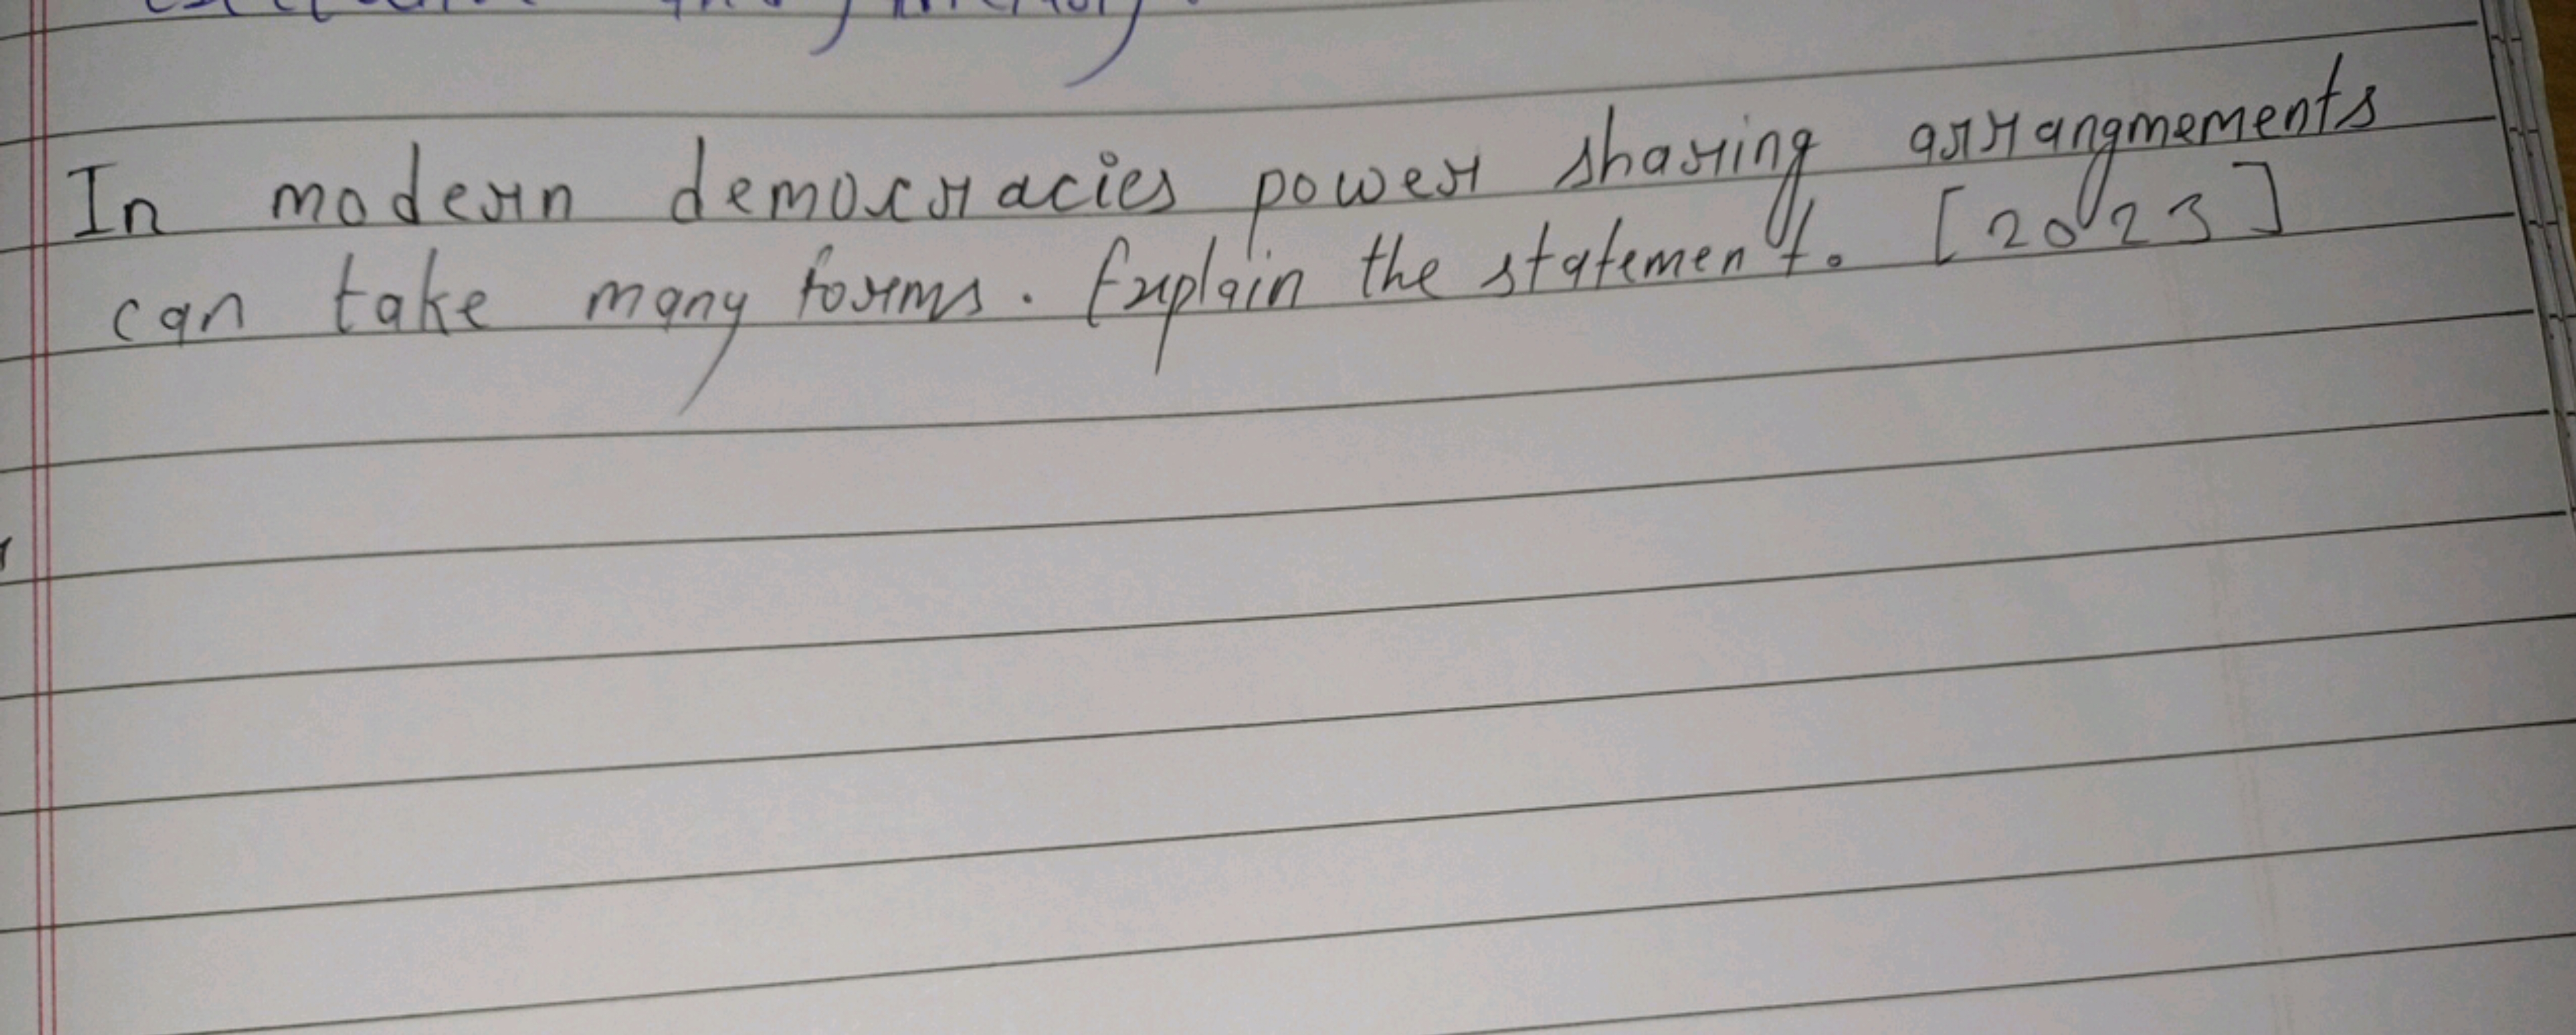 In modern democracies power sharing arrangmements
can take many forms. Explain the statement. [2023]